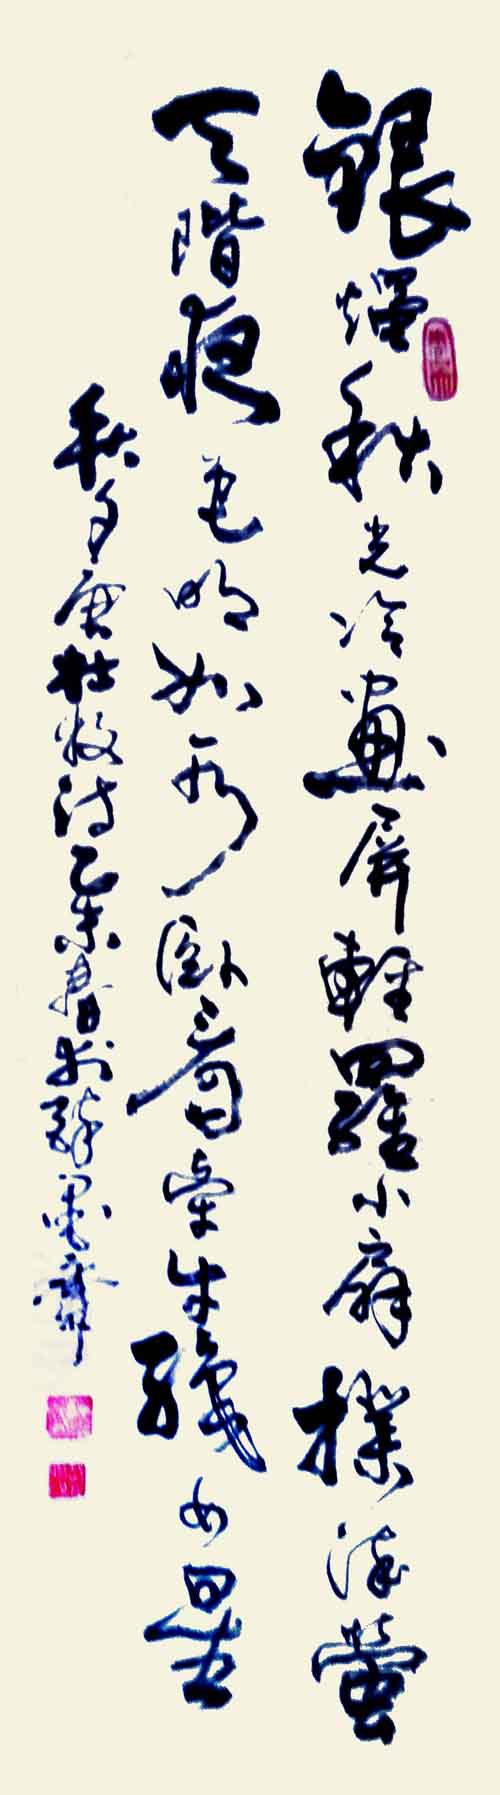 銀燭秋光冷畫屏輕羅小扇撲流螢
天階夜色明如水臥看牽牛織女星
秋夕唐杜牧詩乙未春於醉墨齋